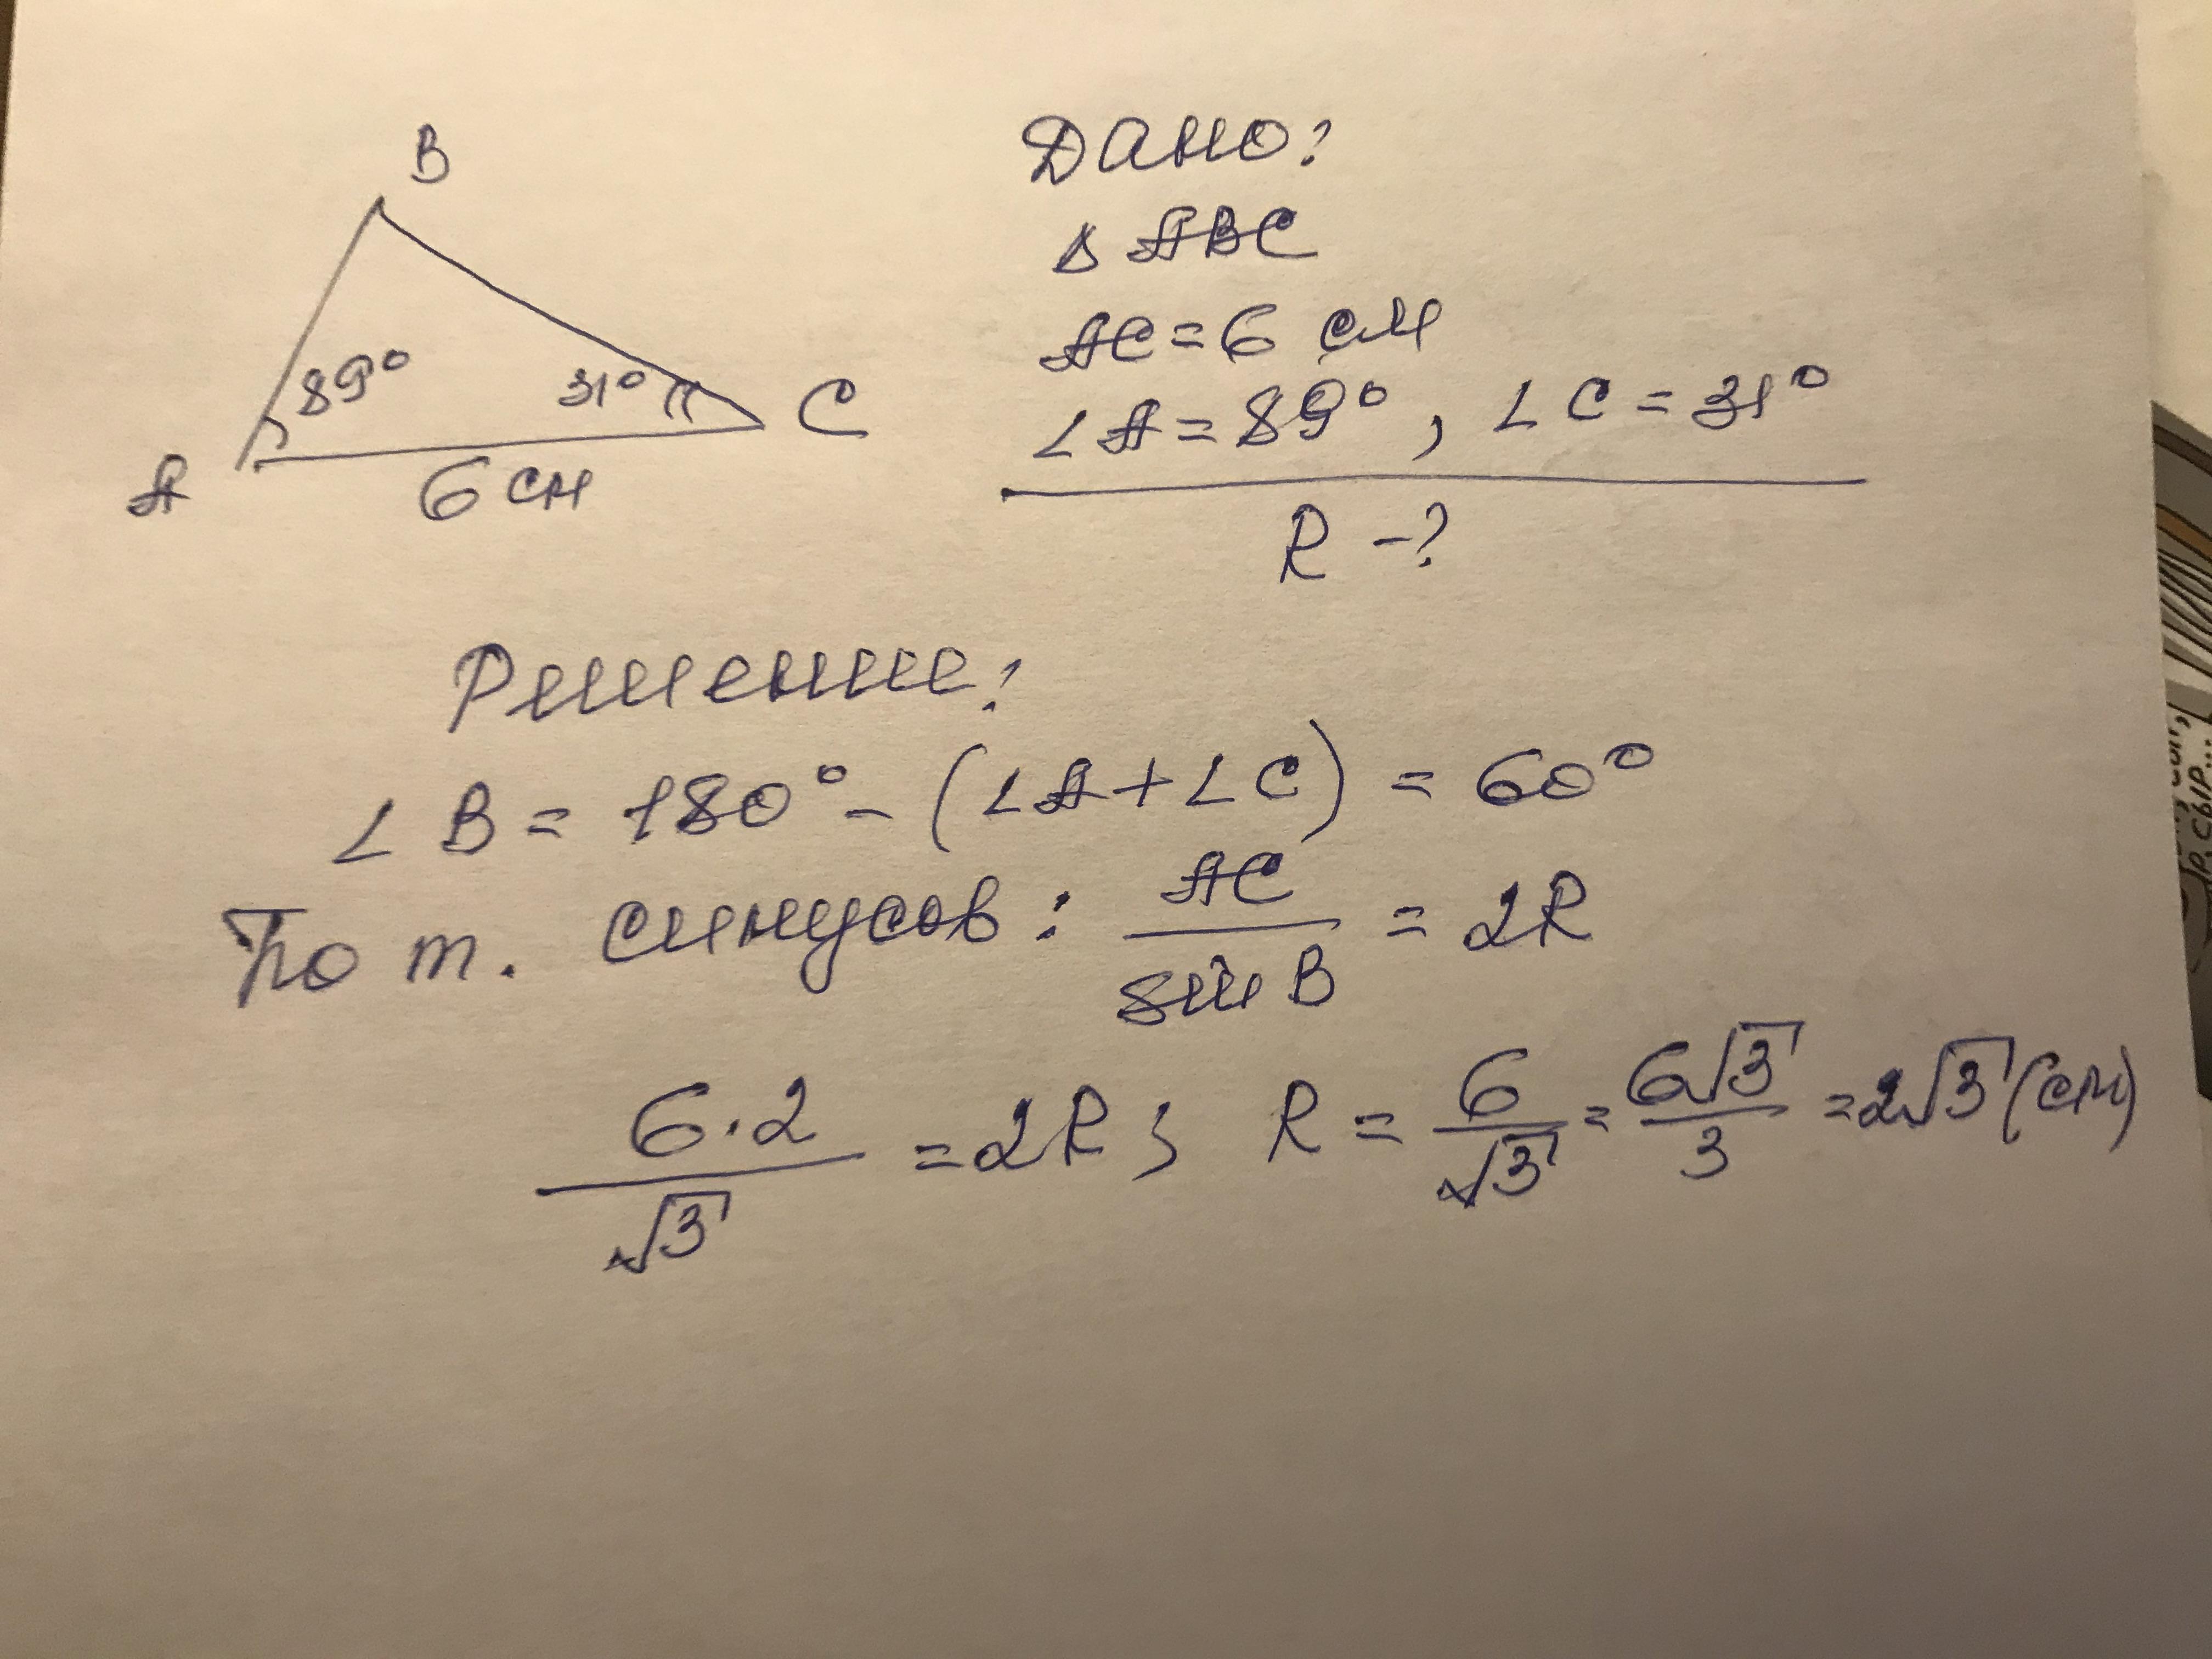 B
89°
31°
C
A
6 см
Дано:
Δ ABC
AC = 6 см
∠A = 89°, ∠C = 31°
R - ?
Решение:
∠B = 180° - (∠A + ∠C) = 60°
По т. синусов: AC / sin B = 2R
6·2 / √3 = 2R; R = 6 / √3 = 6√3 / 3 = 2√3 (см)
сыр...